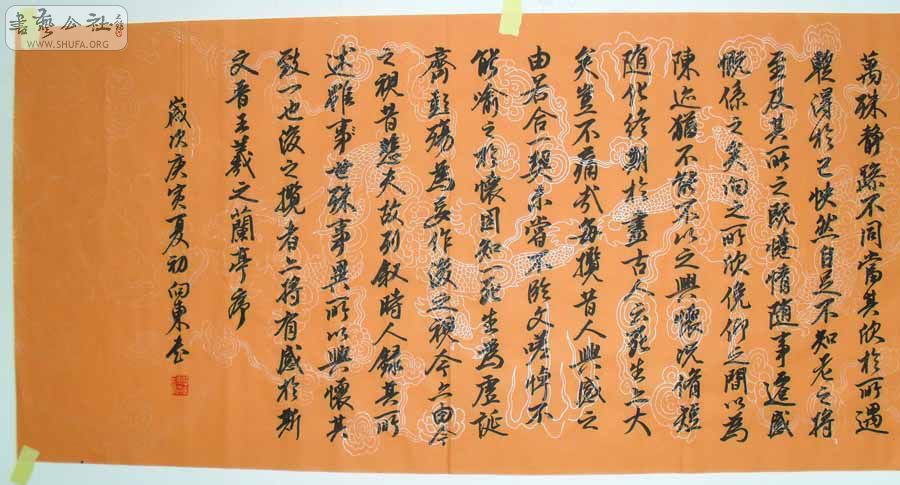 書藝公社
WWW.SHUFA.ORG
萬殊静躁不同當其欣於所遇
暫得於己怏然自足不知老之將
至及其所之既惓情随事遷感
慨係之矣向之所欣俛仰之間以為
陳迹猶不能不以之興懷況脩短
随化終期於盡古人云死生亦大
矣豈不痛哉每攬昔人興感之
由若合一契未嘗不臨文嗟悼不
能喻之於懷固知一死生為虚誕
齊彭殤為妄作後之視今亦由今
之視昔悲夫故列叙時人錄其所
述雖事世殊事異所以興懷其
致一也後之攬者亦將有感於斯
文晋王羲之蘭亭序
歲次庚寅夏初向東書